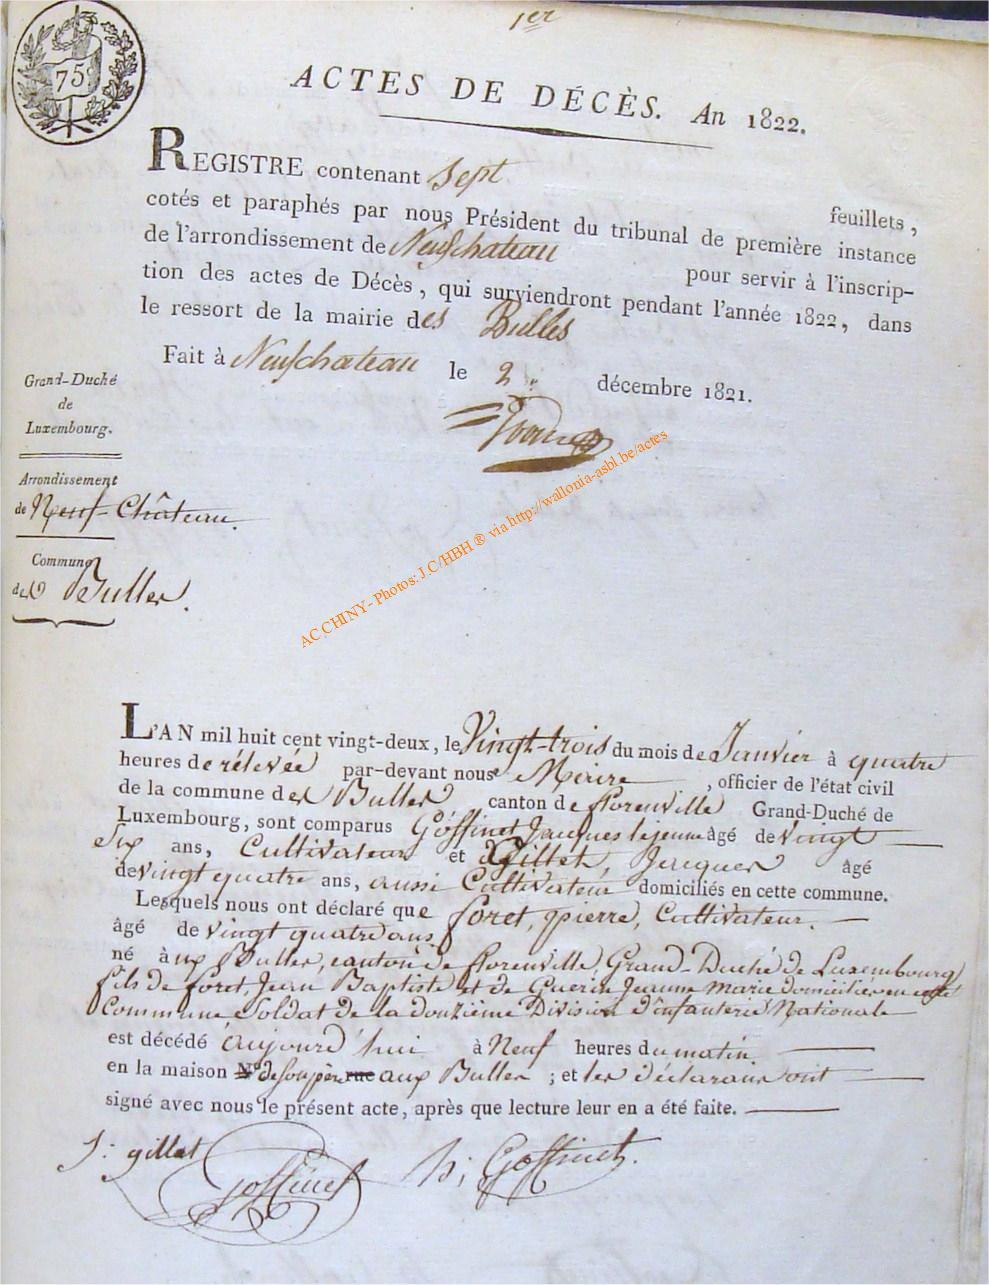 1er
75
ACTES DE DÉCÈS. An 1822.
REGISTRE contenant Sept feuillets,
cotés et paraphés par nous Président du tribunal de première instance
de l'arrondissement de Neufchateau pour servir à l'inscrip-
tion des actes de Décès, qui surviendront pendant l'année 1822, dans
le ressort de la mairie des Bulles
Fait à Neufchateau le 2 décembre 1821.
Grand-Duché
de
Luxembourg.
Arrondissement
de Neuf-Château.
Commune
des Bulles.
AC CHINY- Photos: J.C/HBH ® via http://wallonia-asbl.be/actes
L'AN mil huit cent vingt-deux, le Vingt-trois du mois de Janvier à quatre
heures de rélevée par-devant nous Maire, officier de l'état civil
de la commune des Bulles canton de florenville Grand-Duché de
Luxembourg, sont comparus Goffinet Jacques lejeune âgé de vingt
Six ans, Cultivateur et Gillet, Jacques âgé
de vingt quatre ans, aussi Cultivateur domiciliés en cette commune.
Lesquels nous ont déclaré que foret, pierre, Cultivateur.
âgé de vingt quatre ans
né aux Bulles, canton de florenville, Grand-Duché de Luxembourg
fils de foret, Jean Baptiste et de Guerin Jeanne Marie domiciliés en cette
Commune Soldat de la douzième Division d'infanterie Nationale
est décédé aujourd'hui à Neuf heures du matin.
en la maison N.o de son père rue aux Bulles ; et les déclarans ont
signé avec nous le présent acte, après que lecture leur en a été faite.
J: gillet
Goffinet h; Goffinet.